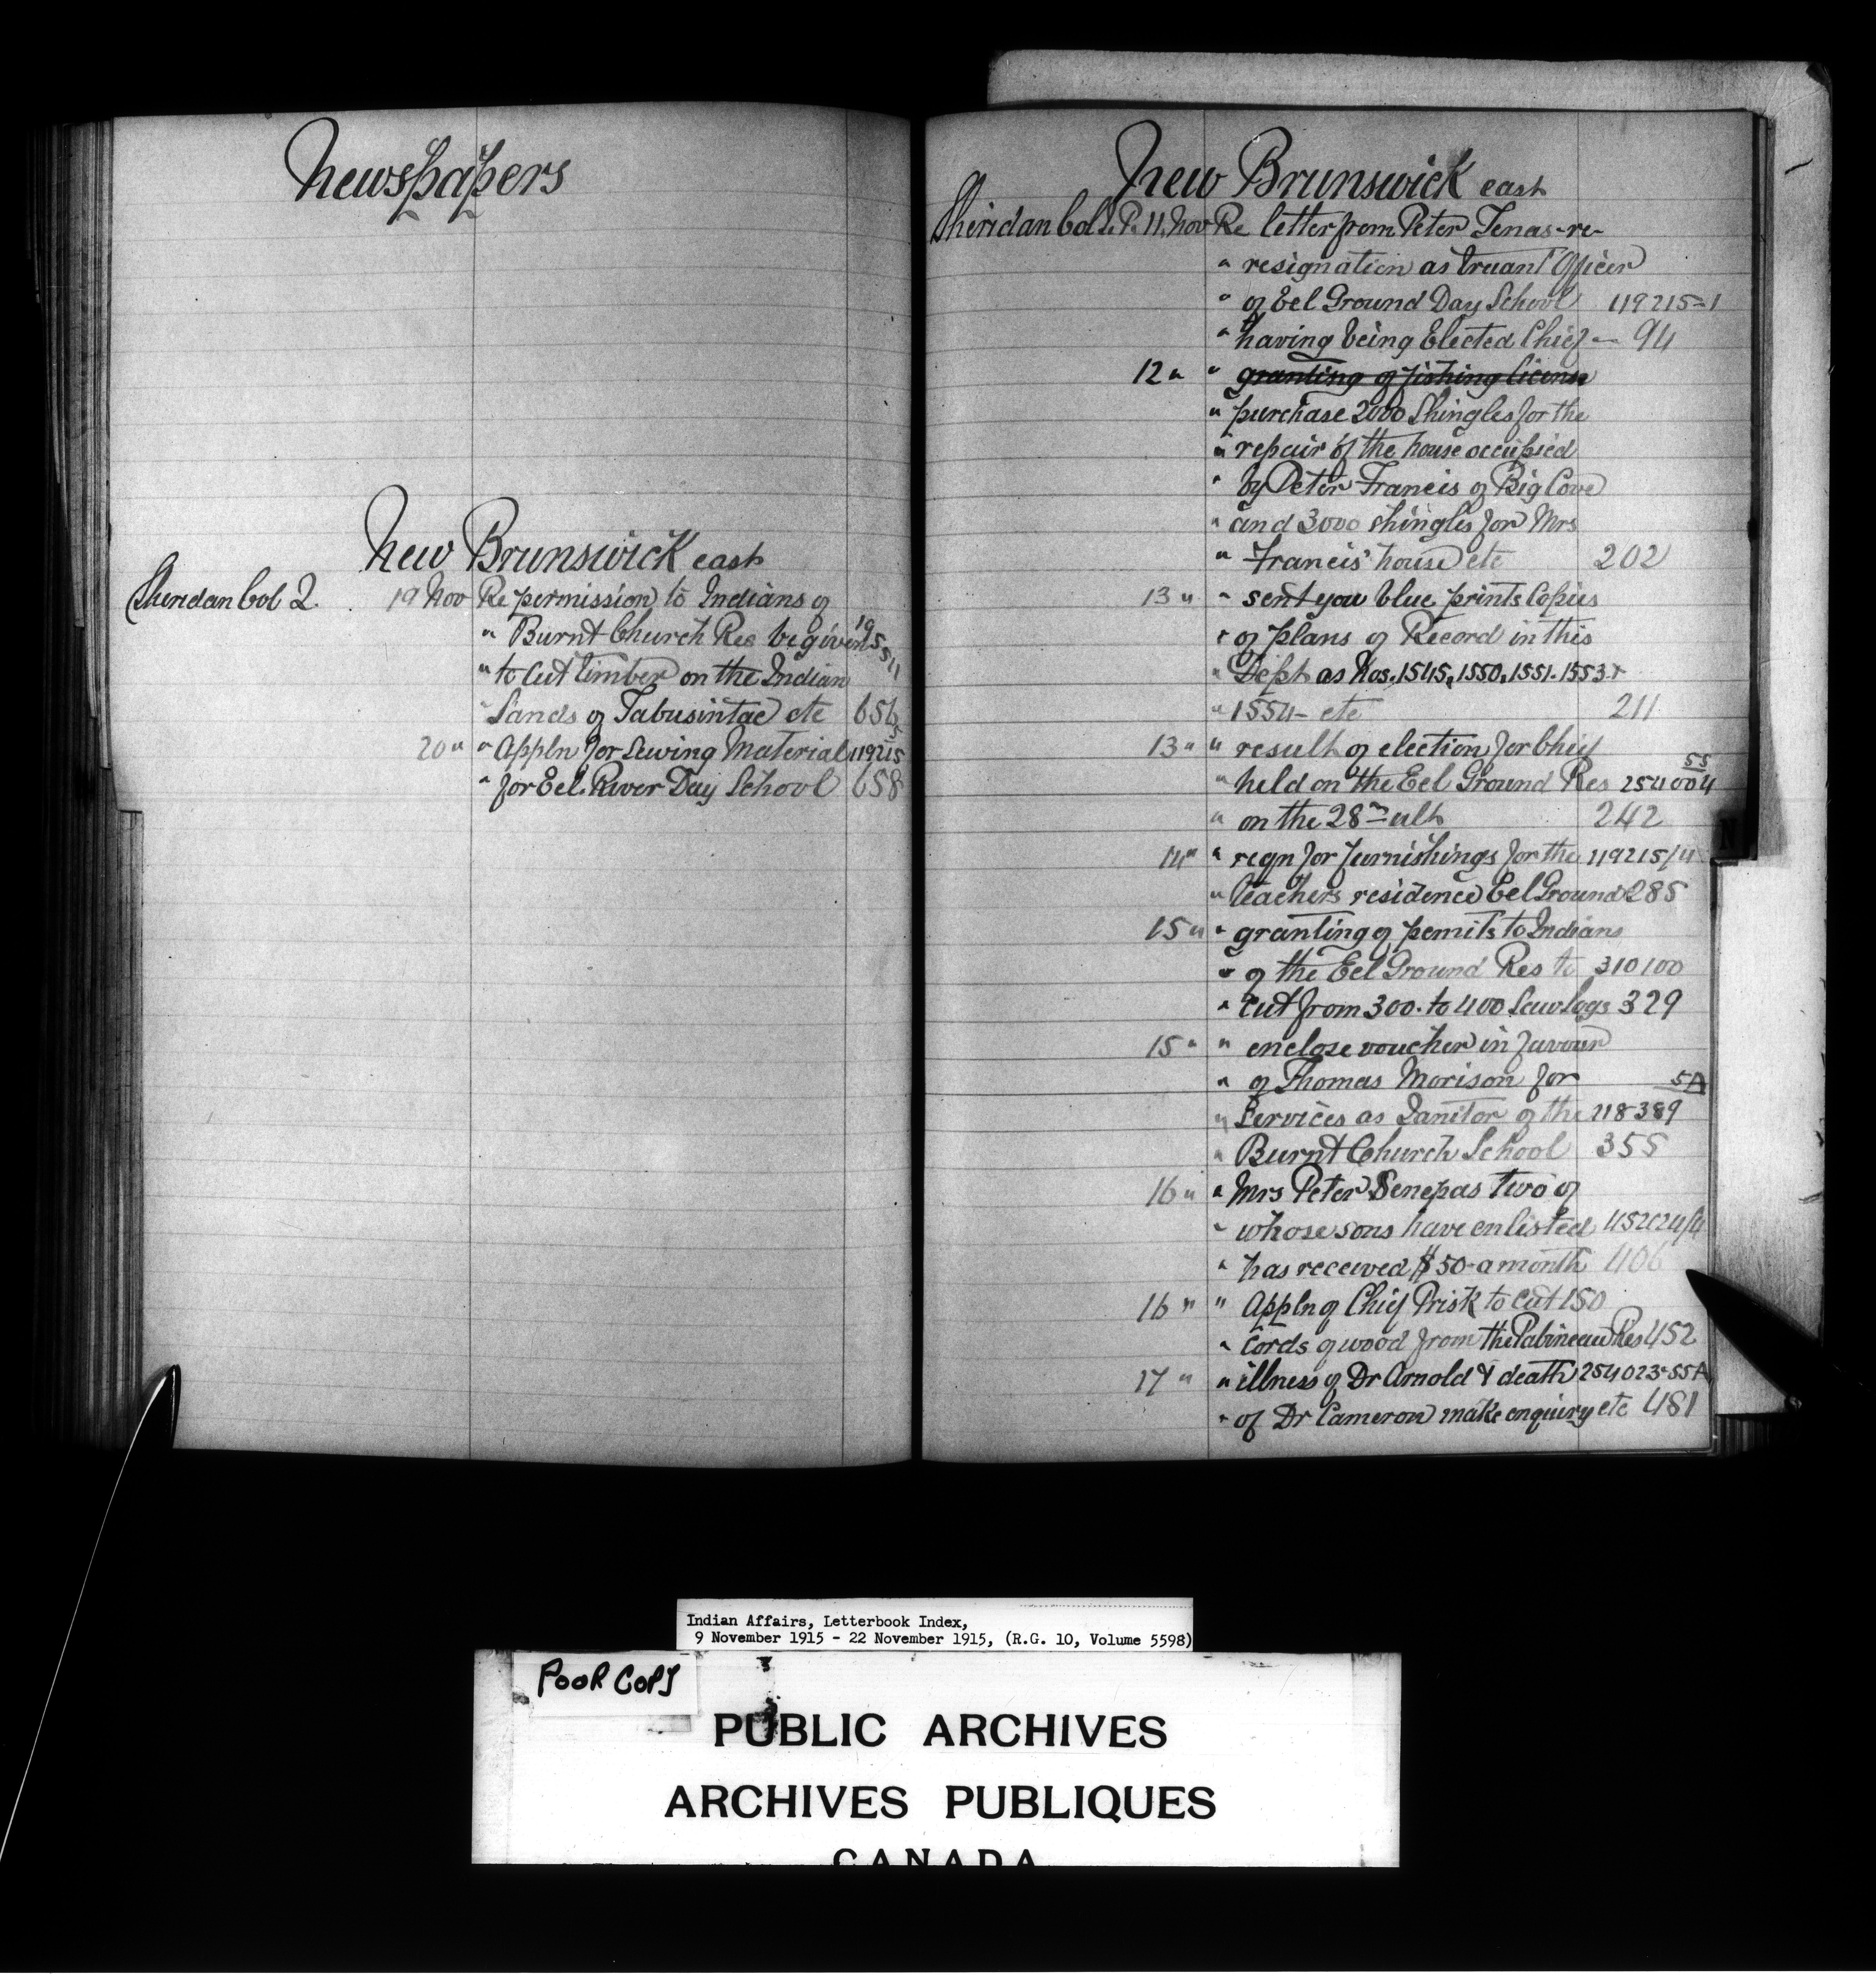 Newspapers
New Brunswick east
Sheridan Col 2. 19 Nov Re permission to Indians of
" Burnt Church Res be given
" to cut timber on the Indian
" Lands of Tabusintac etc 656
20 " " Appln for Sewing Material 119215
" for Eel River Day School 658
New Brunswick east
Sheridan Col 11 Nov Re letter from Peter Tenas re
" resignation as truant Officer
" of Eel Ground Day School 119215-1
" having being Elected Chief - 94
12 " " granting of fishing license
" purchase 2000 Shingles for the
" repair of the house occupied
" by Peter Francis of Big Cove
" and 3000 shingles for Mrs
" Francis' house etc 202
13 " " sent you blue prints Copies
" of plans of Record in this
" Dept as Nos. 1545, 1550, 1551. 1553 +
" 1554 - etc 211
13 " " result of election for Chief
" held on the Eel Ground Res 254004 55
" on the 28th ult 242
14 " " reqn for furnishings for the 119215/4
" teachers residence Eel Ground 285
15 " " granting of pemits to Indians
" of the Eel Ground Res to 310100
" cut from 300. to 400 Saw Logs 329
15 " " enclose voucher in favour
" of Thomas Morison for 5A
" Services as Janitor of the 218389
" Burnt Church School 355
16 " " Mrs Peter two of
" whose sons have enlisted
" has received $50 a month 406
16 " " Appln of Chief Prisk to cut 150
" Cords of wood from the Pabineau Res 452
17 " " illness of Dr Arnold & death 254023-55A
" of Dr Cameron make enquiry etc 481
N
Indian Affairs, Letterbook Index,
9 November 1915 - 22 November 1915, (R.G. 10, Volume 5598)
POOR COPY
PUBLIC ARCHIVES
ARCHIVES PUBLIQUES
CANADA